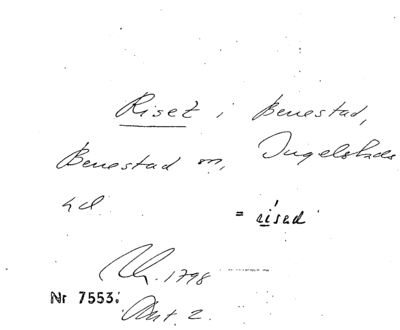 Riset i Benestad,
Benestad sn, Ingelstads
hd
= risəd
1798
Nr 7553.
Akt. 2.